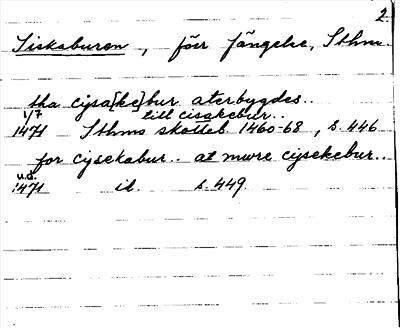 2
Siskaburen, förr fängelse, Sthm.
tha cijsa[ke]bur aterbygdes..
1/7 till cisakebur..
1471 Sthms skotteb. 1460-68, s. 446
for cijsekabur.. at mwre cijsekebur..
u.d.
1471 ib. s. 449.